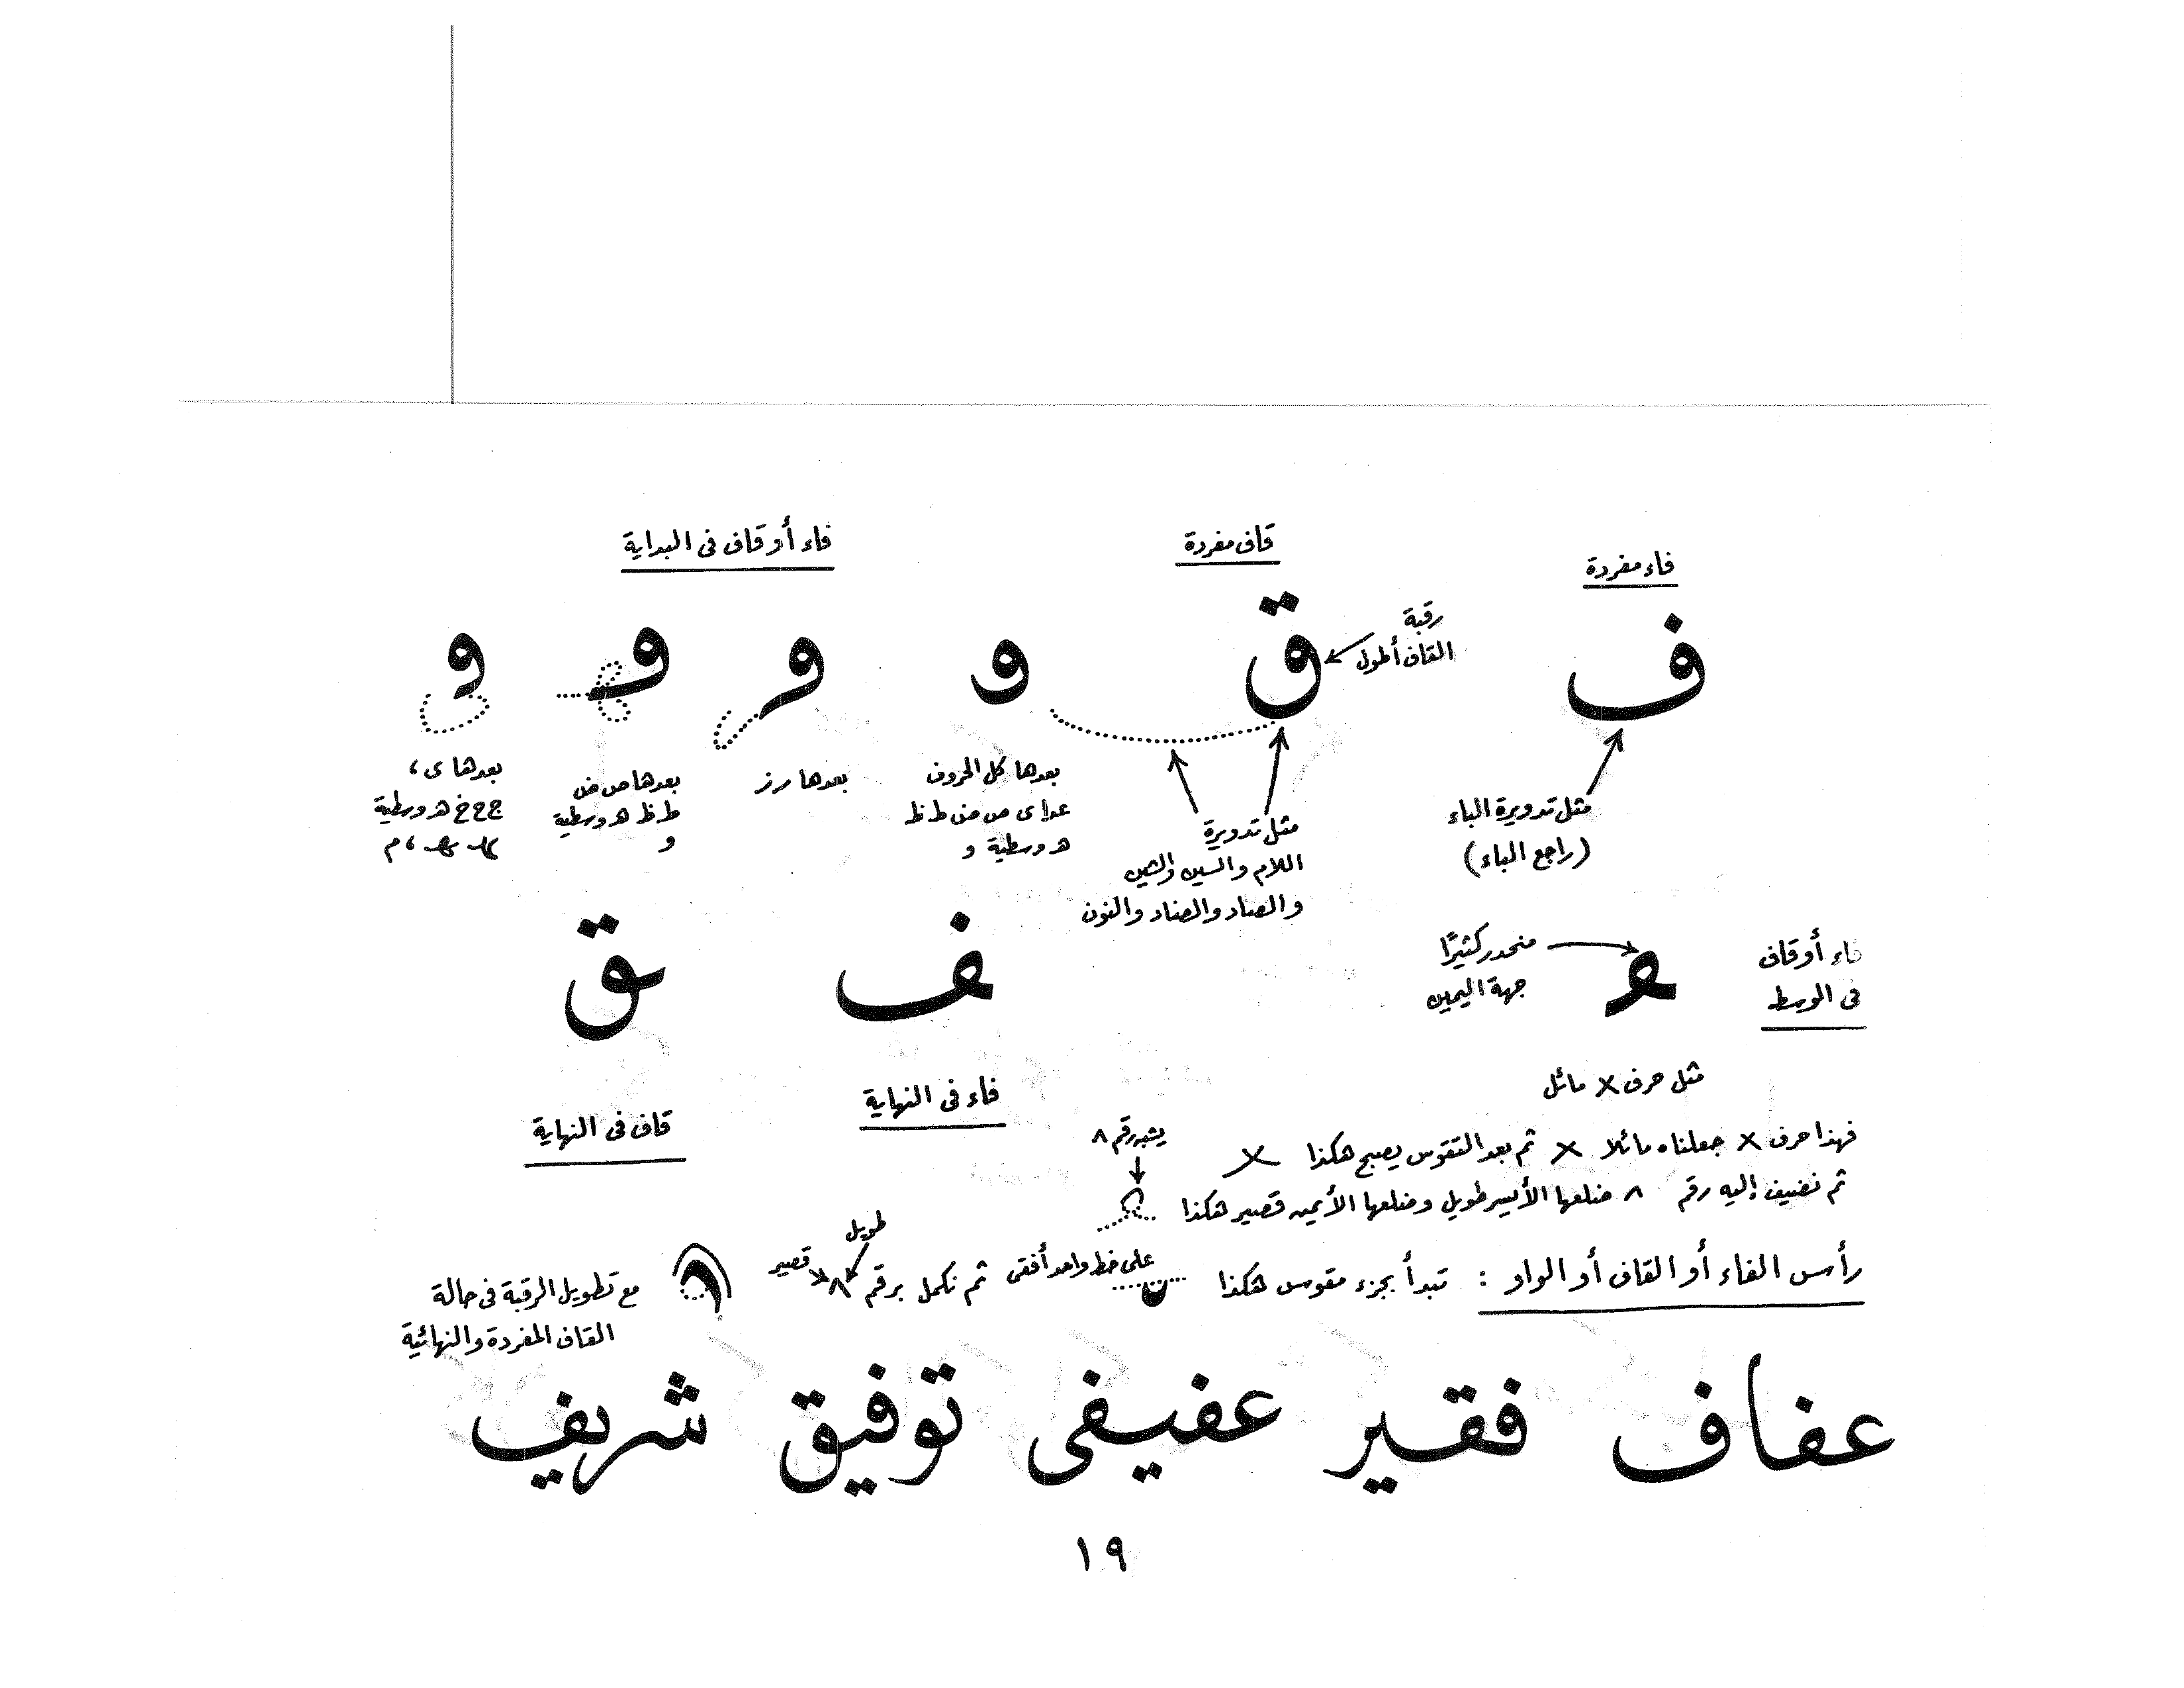 فاء مفردة
قاف مفردة
فاء أو قاف فى البداية
ف
ق
رقبة
القاف أطول
مثل تدويرة الباء
(راجع الباء)
مثل تدويرة
اللام والسين والشين
والصاد والضاد والنون
بعدها كل الحروف
عدا ى ص ض ط ظ
هـ وسطية و
بعدها ر ز
بعدها ص ض
ط ظ هـ وسطية
و
بعدها ى ،
ج ح خ هـ وسطية
، م
فاء أو قاف
فى الوسط
منحدر كثيرًا
جهة اليمين
ف
ق
فاء فى النهاية
قاف فى النهاية
مثل حرف x مائل
فهذا حرف x جعلناه مائلا x ثم بعد التقوس يصبح هكذا x
يشبه رقم ٨
ثم نضيف إليه رقم ٨ ضلعها الأيسر طويل وضلعها الأيمن قصير هكذا
رأس الفاء أو القاف أو الواو : تبدأ بجزء مقوس هكذا على خط واحد أفقى ثم نكمل برقم ٨
طويل
قصير
مع تطويل الرقبة فى حالة
القاف المفردة والنهائية
عفاف فقير عفيفى توفيق شريف
١٩